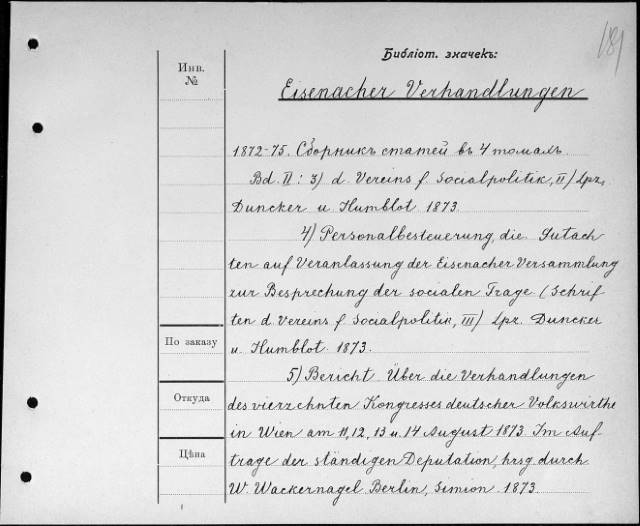 181
Библіот. значекъ:
Инв.
№
Eisenacher Verhandlungen
1872-75. Сборникъ статей въ 4 томахъ.
Bd. II: 3) d. Vereins f. Socialpolitik, II) Lpz.
Duncker u. Humblot 1873
4) Personalbesteuerung, die Gutach
ten auf Veranlassung der Eisenacher Versammlung
zur Besprechung der socialen Frage (Schrif
ten d. Vereins f. Socialpolitik, III) Lpz. Duncker
По заказу
u. Humblot. 1873.
5) Bericht Über die Verhandlungen
Откуда
des vierzehnten Kongresses deutscher Volkswirthe
in Wien am 11, 12, 13 u. 14 August 1873. Im Auf-
Цѣна
trage der ständigen Deputation, hrsg. durch
W. Wackernagel. Berlin, Simion. 1873.